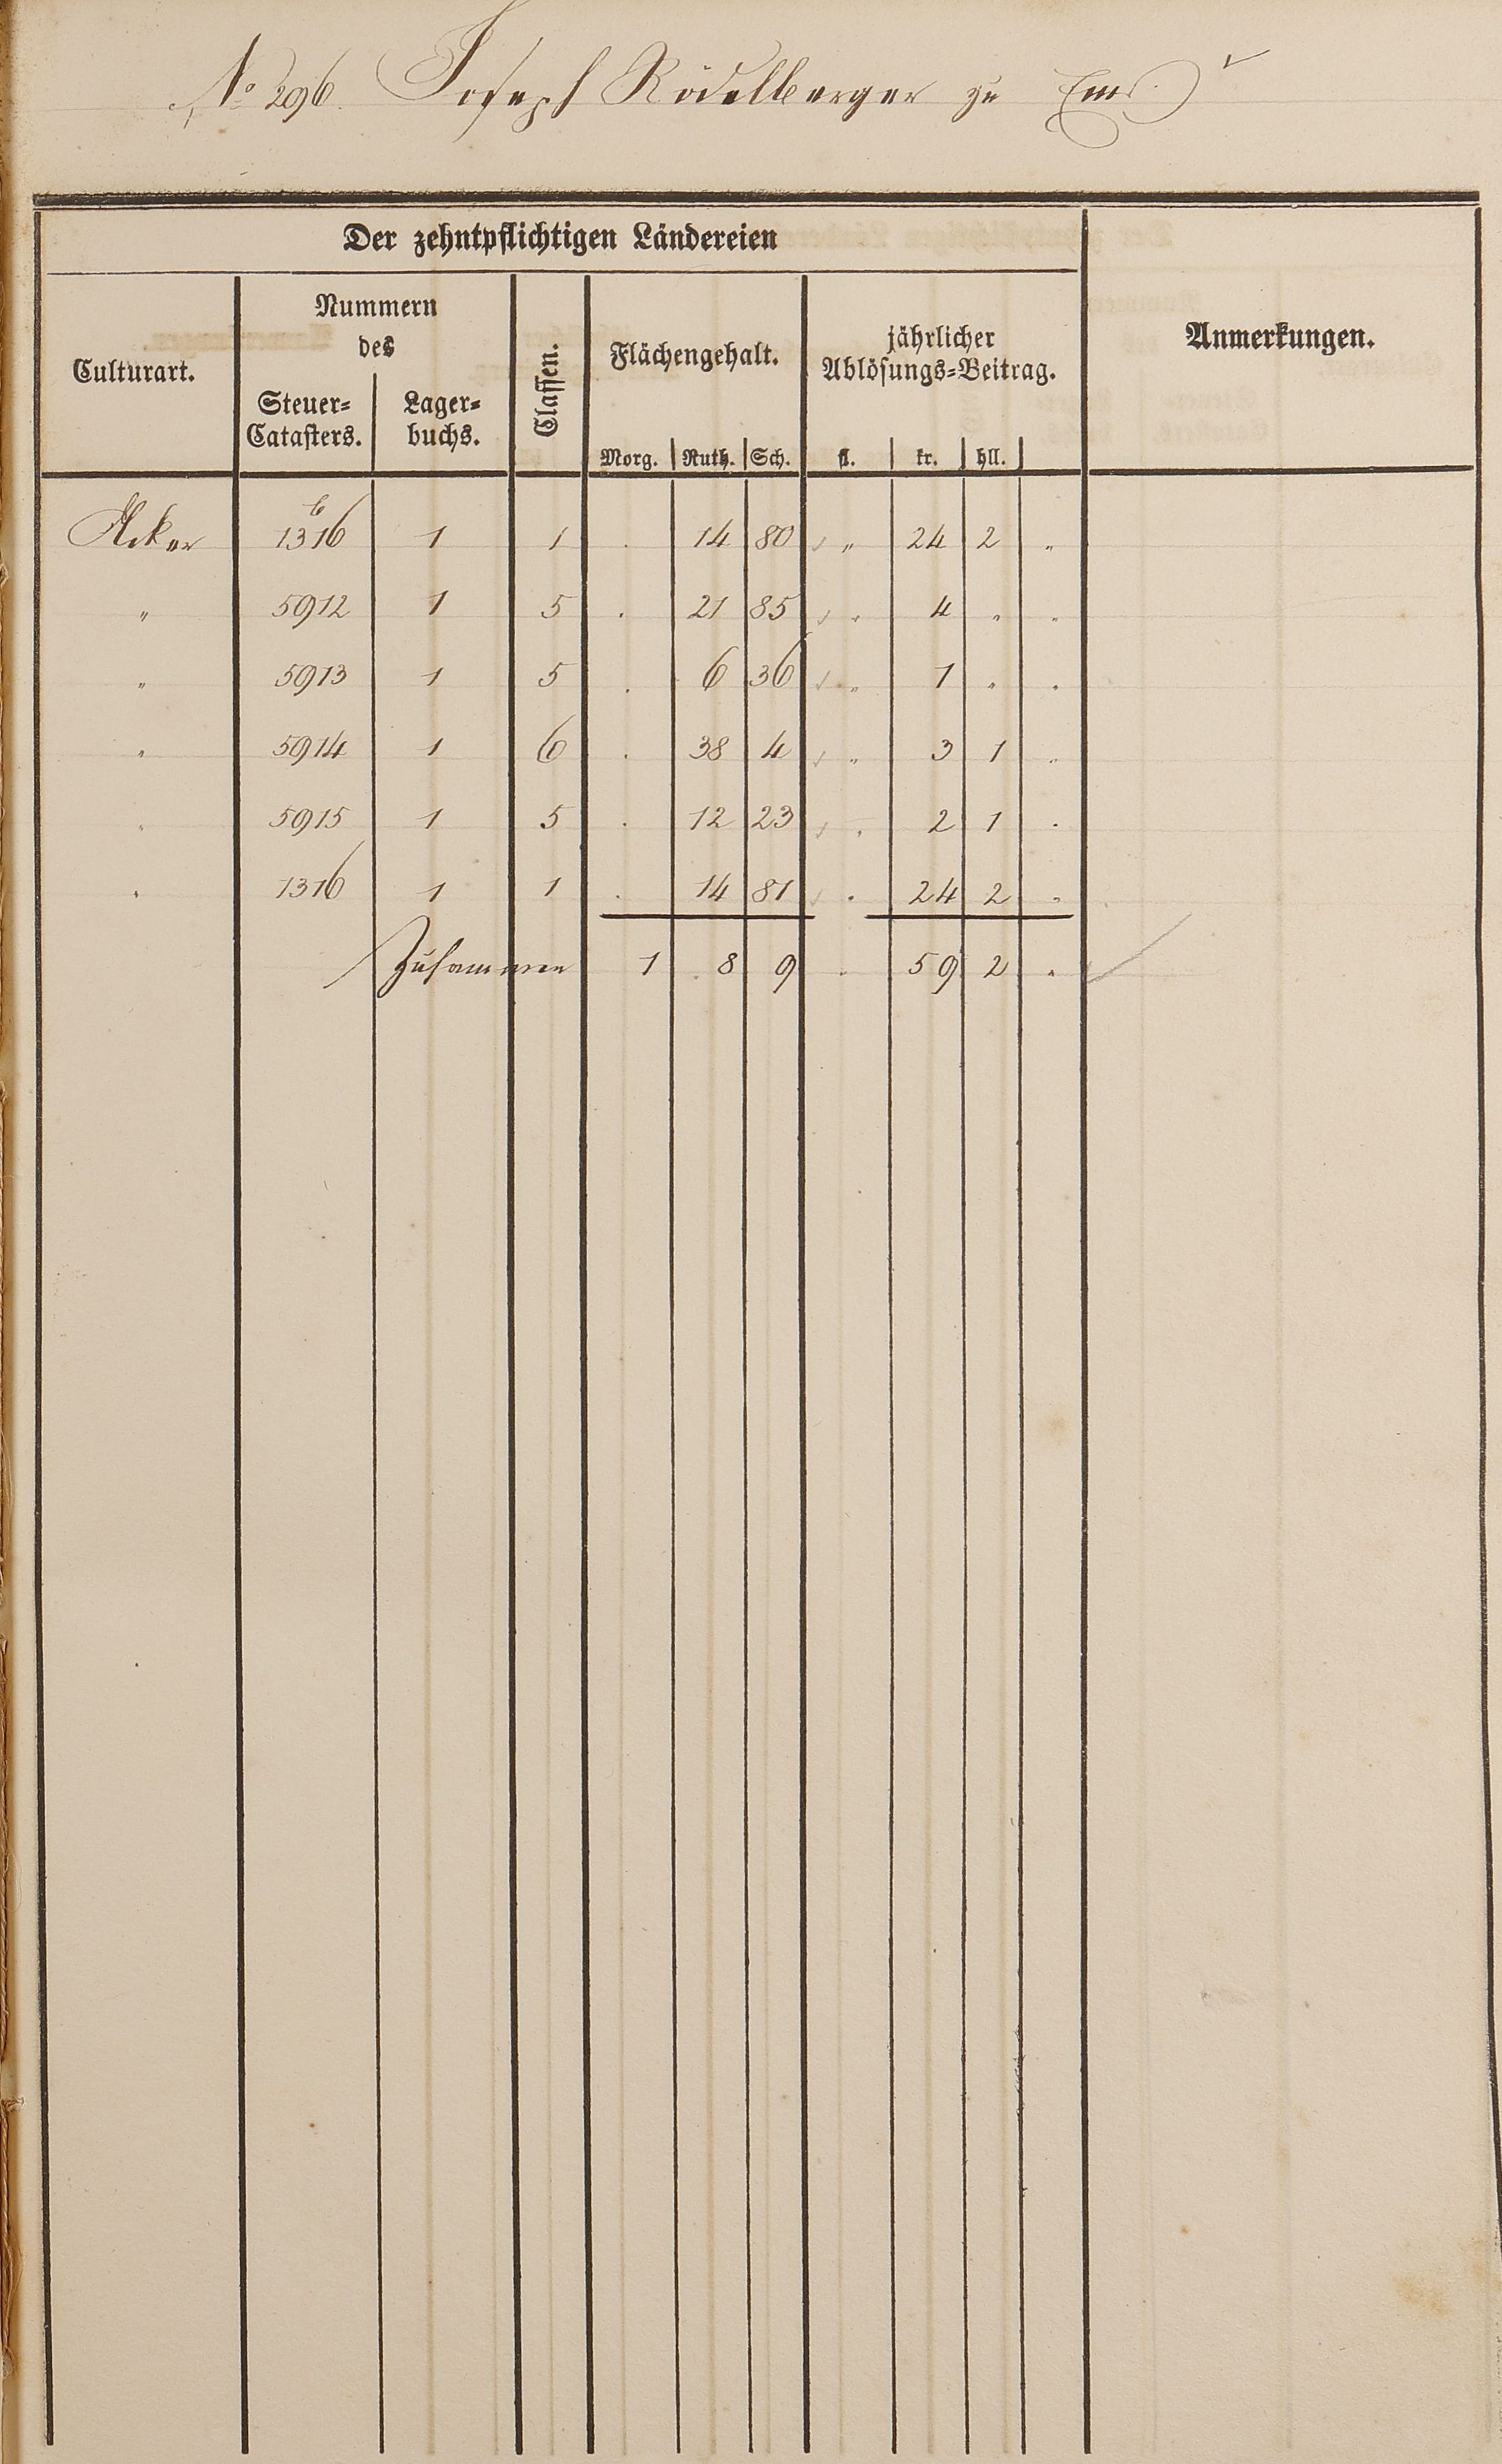 No 296. Joseph Rödelberger zu Ems
Der zehntpflichtigen Ländereien
Culturart. Nummern des Steuer=Catasters. Lager=buchs. Classen. Flächengehalt. jährlicher Ablösungs=Beitrag. Anmerkungen.
Morg. Ruth. Sch. fl. kr. hll.
Acker 1316 b 1 1 . 14 80 „ 24 2 „
„ 5912 1 5 . 21 85 „ 4 „ „
„ 5913 1 5 . 6 36 „ 1 „ „
„ 5914 1 6 . 38 4 „ 3 1 „
„ 5915 1 5 . 12 23 „ 2 1 .
„ 1316 1 1 . 14 81 . 24 2 „
Zusammen 1 8 9 . 59 2 „